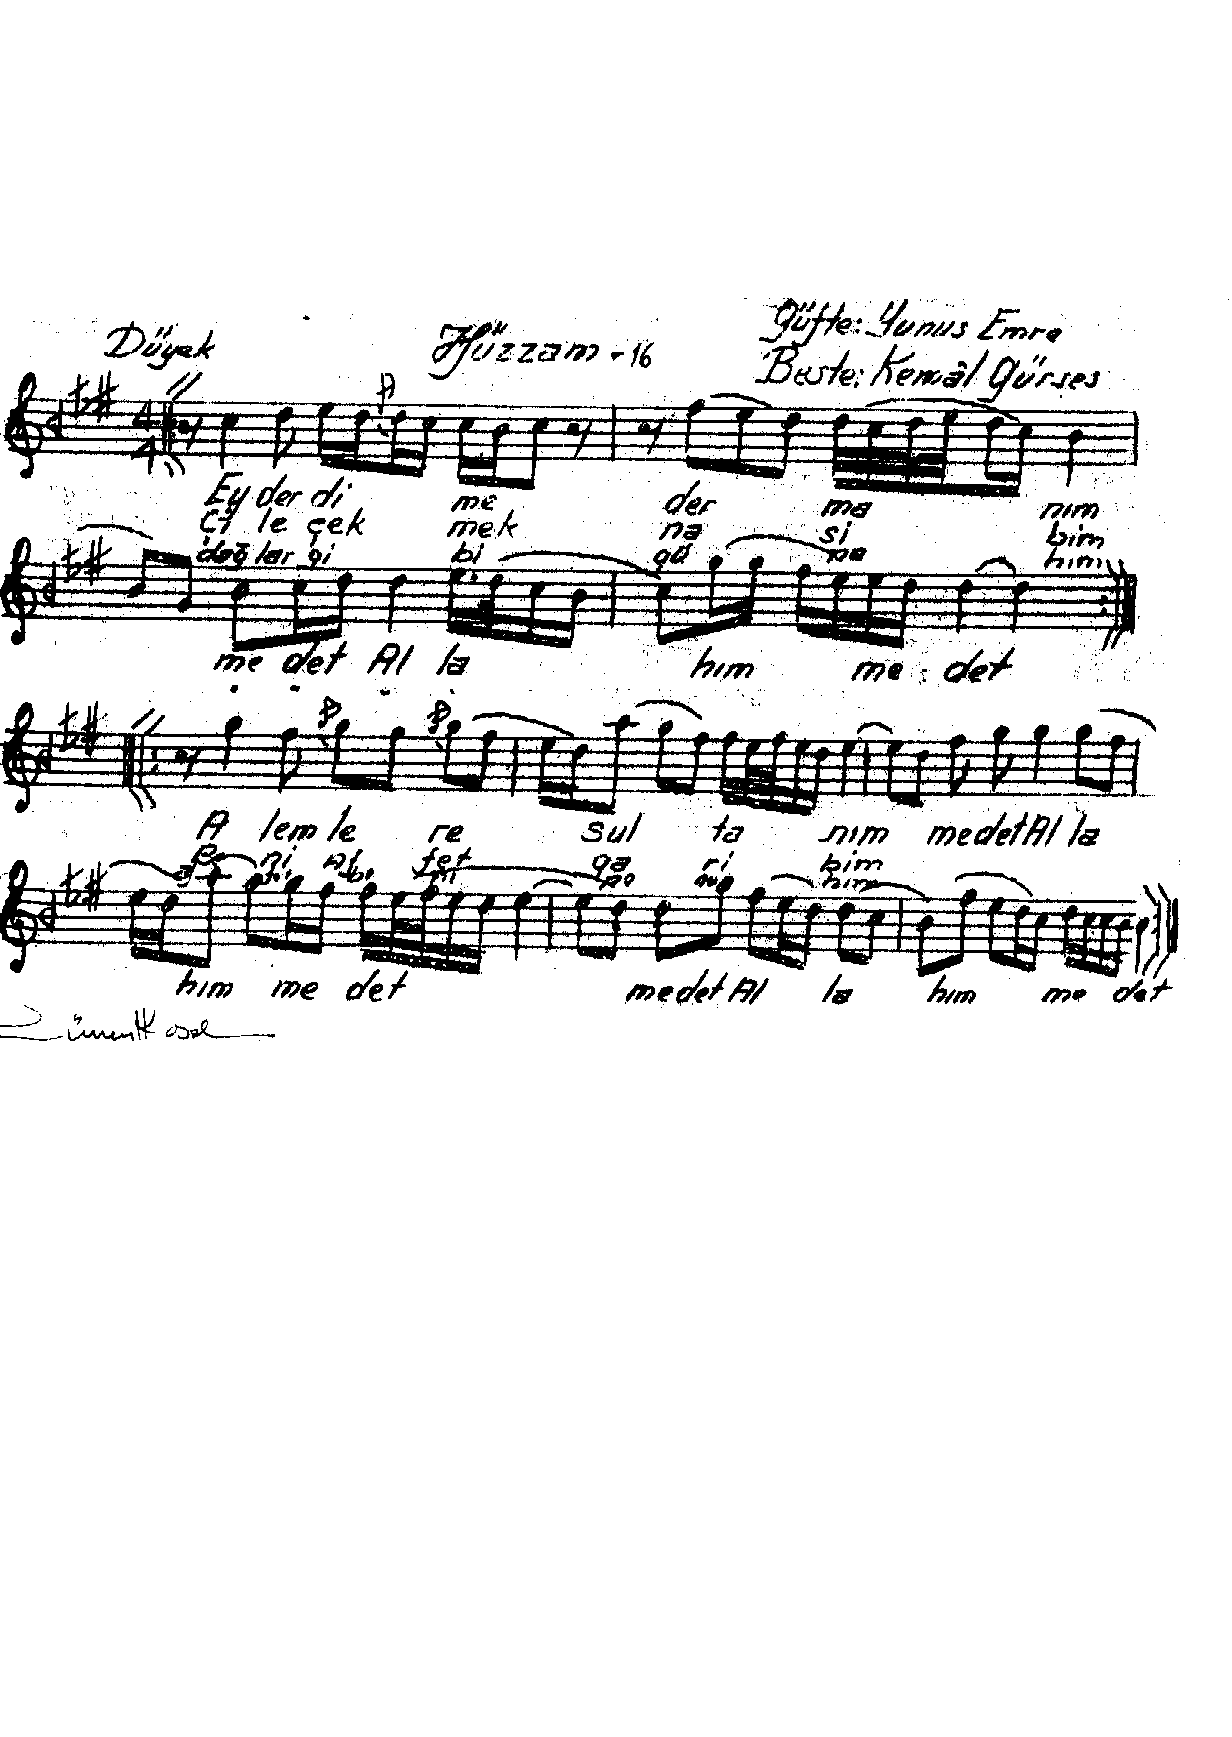 Düyek
Hüzzam - 16
Güfte: Yunus Emre
Beste: Kemâl Gürses
4/4
Ey der di me der ma nım
Çi le çek mek na si bim
dağ lar gi bi gü na him
me det Al la hım me det
A lem le re sul ta nım medet Al la
ni fet ga ri bim
him
hım me det medet Al la hım me det